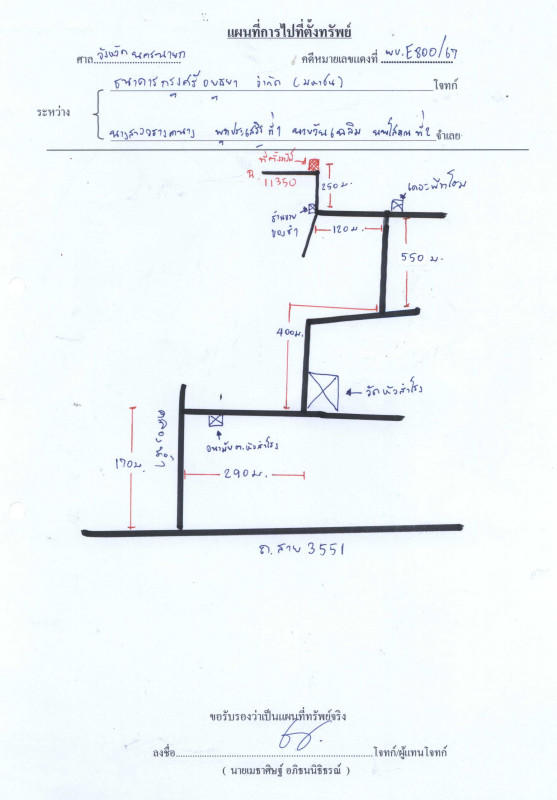 แผนที่การไปที่ตั้งทรัพย์
ศาล จังหวัดนครนายก คดีหมายเลขแดงที่ ผบ.E800/67
ธนาคารกรุงศรีอยุธยา จำกัด (มหาชน) โจทก์
ระหว่าง
นางสาวอรางคนาง ที่ 1 นายวันเฉลิม ที่ 2 จำเลย
ที่ตั้งทรัพย์
ฉ. 11350
250 ม.
ร้านขายของชำ
120 ม.
550 ม.
400 ม.
วัดหัวสำโรง
อนามัย ต.หัวสำโรง
170 ม.
290 ม.
ถ.สาย 3551
ขอรับรองว่าเป็นแผนที่ทรัพย์จริง
ลงชื่อ โจทก์/ผู้แทนโจทก์
( นายเมธาศิษฐ์ อภิธนนิธิธรณ์ )